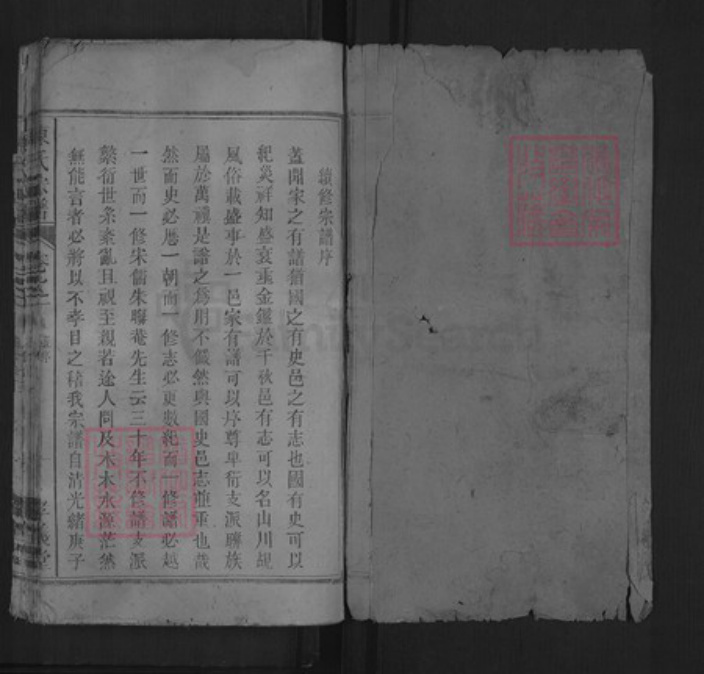 續修宗譜序
蓋聞家之有譜猶國之有史邑之有志也國有史可以
紀災祥知盛衰垂金鑑於千秋邑有志可以名山川覘
風俗載盛事於一邑家有譜可以序尊卑衍支派聯族
屬於萬禩是譜之為用不儼然與國史邑志並重也哉
然而史必歷一朝而一修志必更數紀而一修譜必越
一世而一修宋儒朱晦菴先生云三十年不修譜支派
繁衍世系紊亂且視至親若途人問及木本水源茫然
無能言者必將以不孝目之稽我宗譜自清光緒庚子
陳氏宗譜
孝義堂
FamilySearch